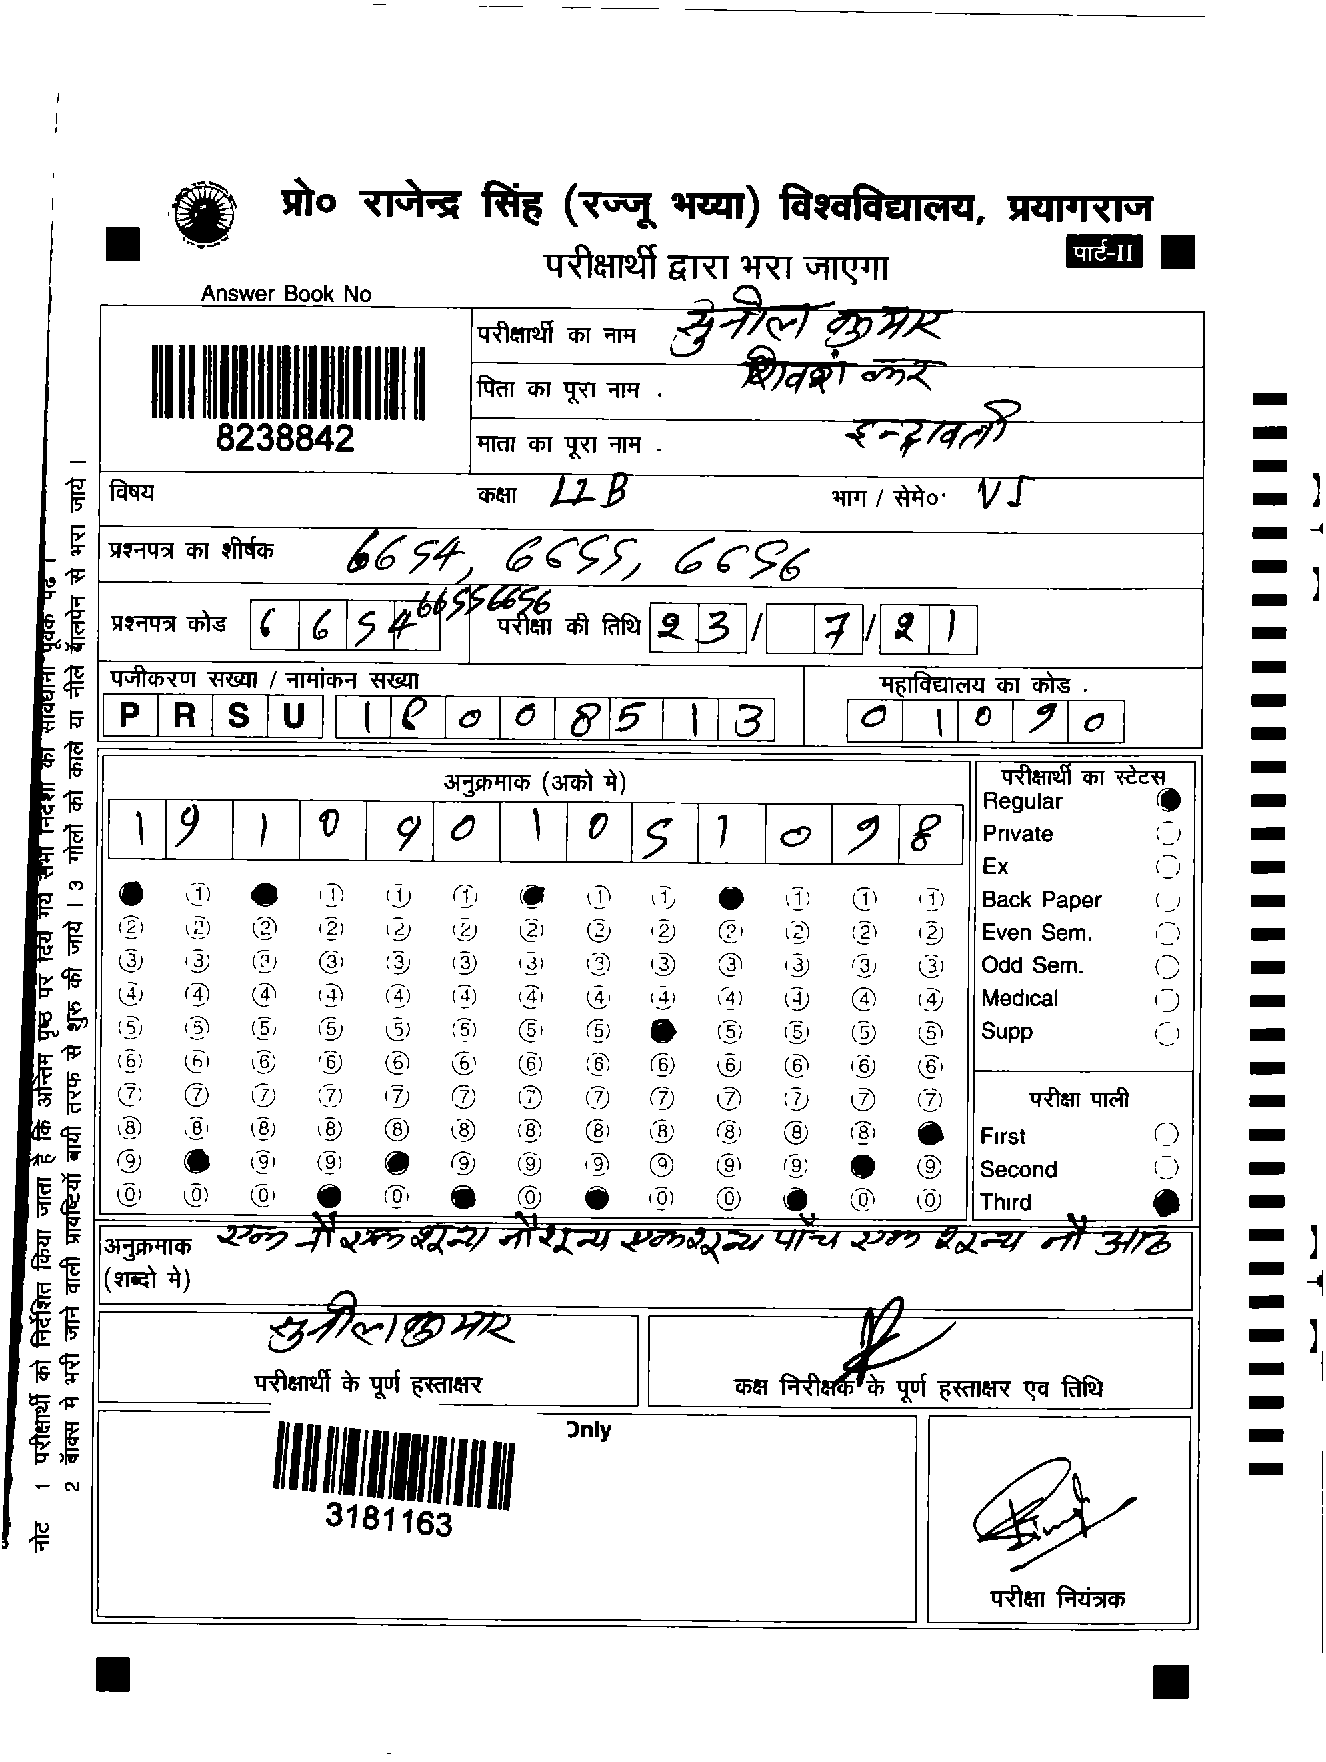 प्रो० राजेन्द्र सिंह (रज्जू भय्या) विश्वविद्यालय, प्रयागराज
पार्ट-II
परीक्षार्थी द्वारा भरा जाएगा
Answer Book No
8238842
परीक्षार्थी का नाम सुनील कुमार
पिता का पूरा नाम . शिवशंकर
माता का पूरा नाम . इन्द्रावती
विषय कक्षा LLB भाग / सेमे०· VI
प्रश्नपत्र का शीर्षक 6654, 6655, 6656
प्रश्नपत्र कोड 6 6 5 4 6655 6656 परीक्षा की तिथि 2 3 / 7 / 2 1
पजीकरण सख्या / नामांकन सख्या महाविद्यालय का कोड .
P R S U 1 8 0 0 8 5 1 3 0 1 0 9 0
अनुक्रमाक (अको मे)
1 9 1 0 9 0 1 0 5 1 0 9 8
1 1 1 1 1 1 1 1 1
2 2 2 2 2 2 2 2 2 2 2 2 2
3 3 3 3 3 3 3 3 3 3 3 3 3
4 4 4 4 4 4 4 4 4 4 4 4 4
5 5 5 5 5 5 5 5 5 5 5 5
6 6 6 6 6 6 6 6 6 6 6 6 6
7 7 7 7 7 7 7 7 7 7 7 7 7
8 8 8 8 8 8 8 8 8 8 8 8
9 9 9 9 9 9 9 9 9 9
0 0 0 0 0 0 0 0 0
परीक्षार्थी का स्टेटस
Regular
Private
Ex
Back Paper
Even Sem.
Odd Sem.
Medical
Supp
परीक्षा पाली
First
Second
Third
अनुक्रमाक एक नौ एक शून्य नौ शून्य एक शून्य पाँच एक शून्य नौ आठ
(शब्दो मे)
सुनील कुमार
परीक्षार्थी के पूर्ण हस्ताक्षर
कक्ष निरीक्षक के पूर्ण हस्ताक्षर एव तिथि
Only
3181163
परीक्षा नियंत्रक
नोट 1 परीक्षार्थी को निर्देशित किया जाता है कि अन्तिम पृष्ठ पर दिये गये सभी निर्देशो को सावधानी पूर्वक पढे ।
2 बॉक्स मे भरी जाने वाली प्रविष्टियों बायी तरफ से शुरू की जाये । 3 गोलों को काले या नीले बॉलपेन से भरा जाये ।